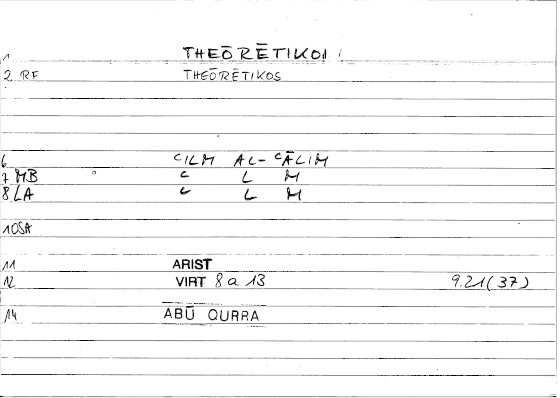 1 THEŌRĒTIKOI
2 RF THEŌRĒTIKOS
6 ʿILM AL-ʿĀLIM
7 MB ʿ L M
8 LA ʿ L M
10SA
11 ARIST
12 VIRT 8 a 13 9.21(37)
14 ABŪ QURRA